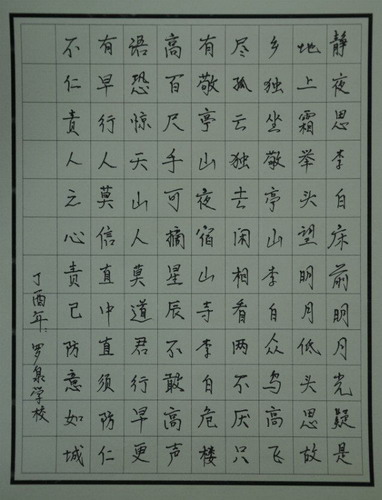 静夜思李白床前明月光疑是
地上霜举头望明月低头思故
乡独坐敬亭山李白众鸟高飞
尽孤云独去闲相看两不厌只
有敬亭山夜宿山寺李白危楼
高百尺手可摘星辰不敢高声
语恐惊天山人莫道君行早更
有早行人莫信直中直须防仁
不仁责人之心责己防意如城
丁酉年.罗泉学校